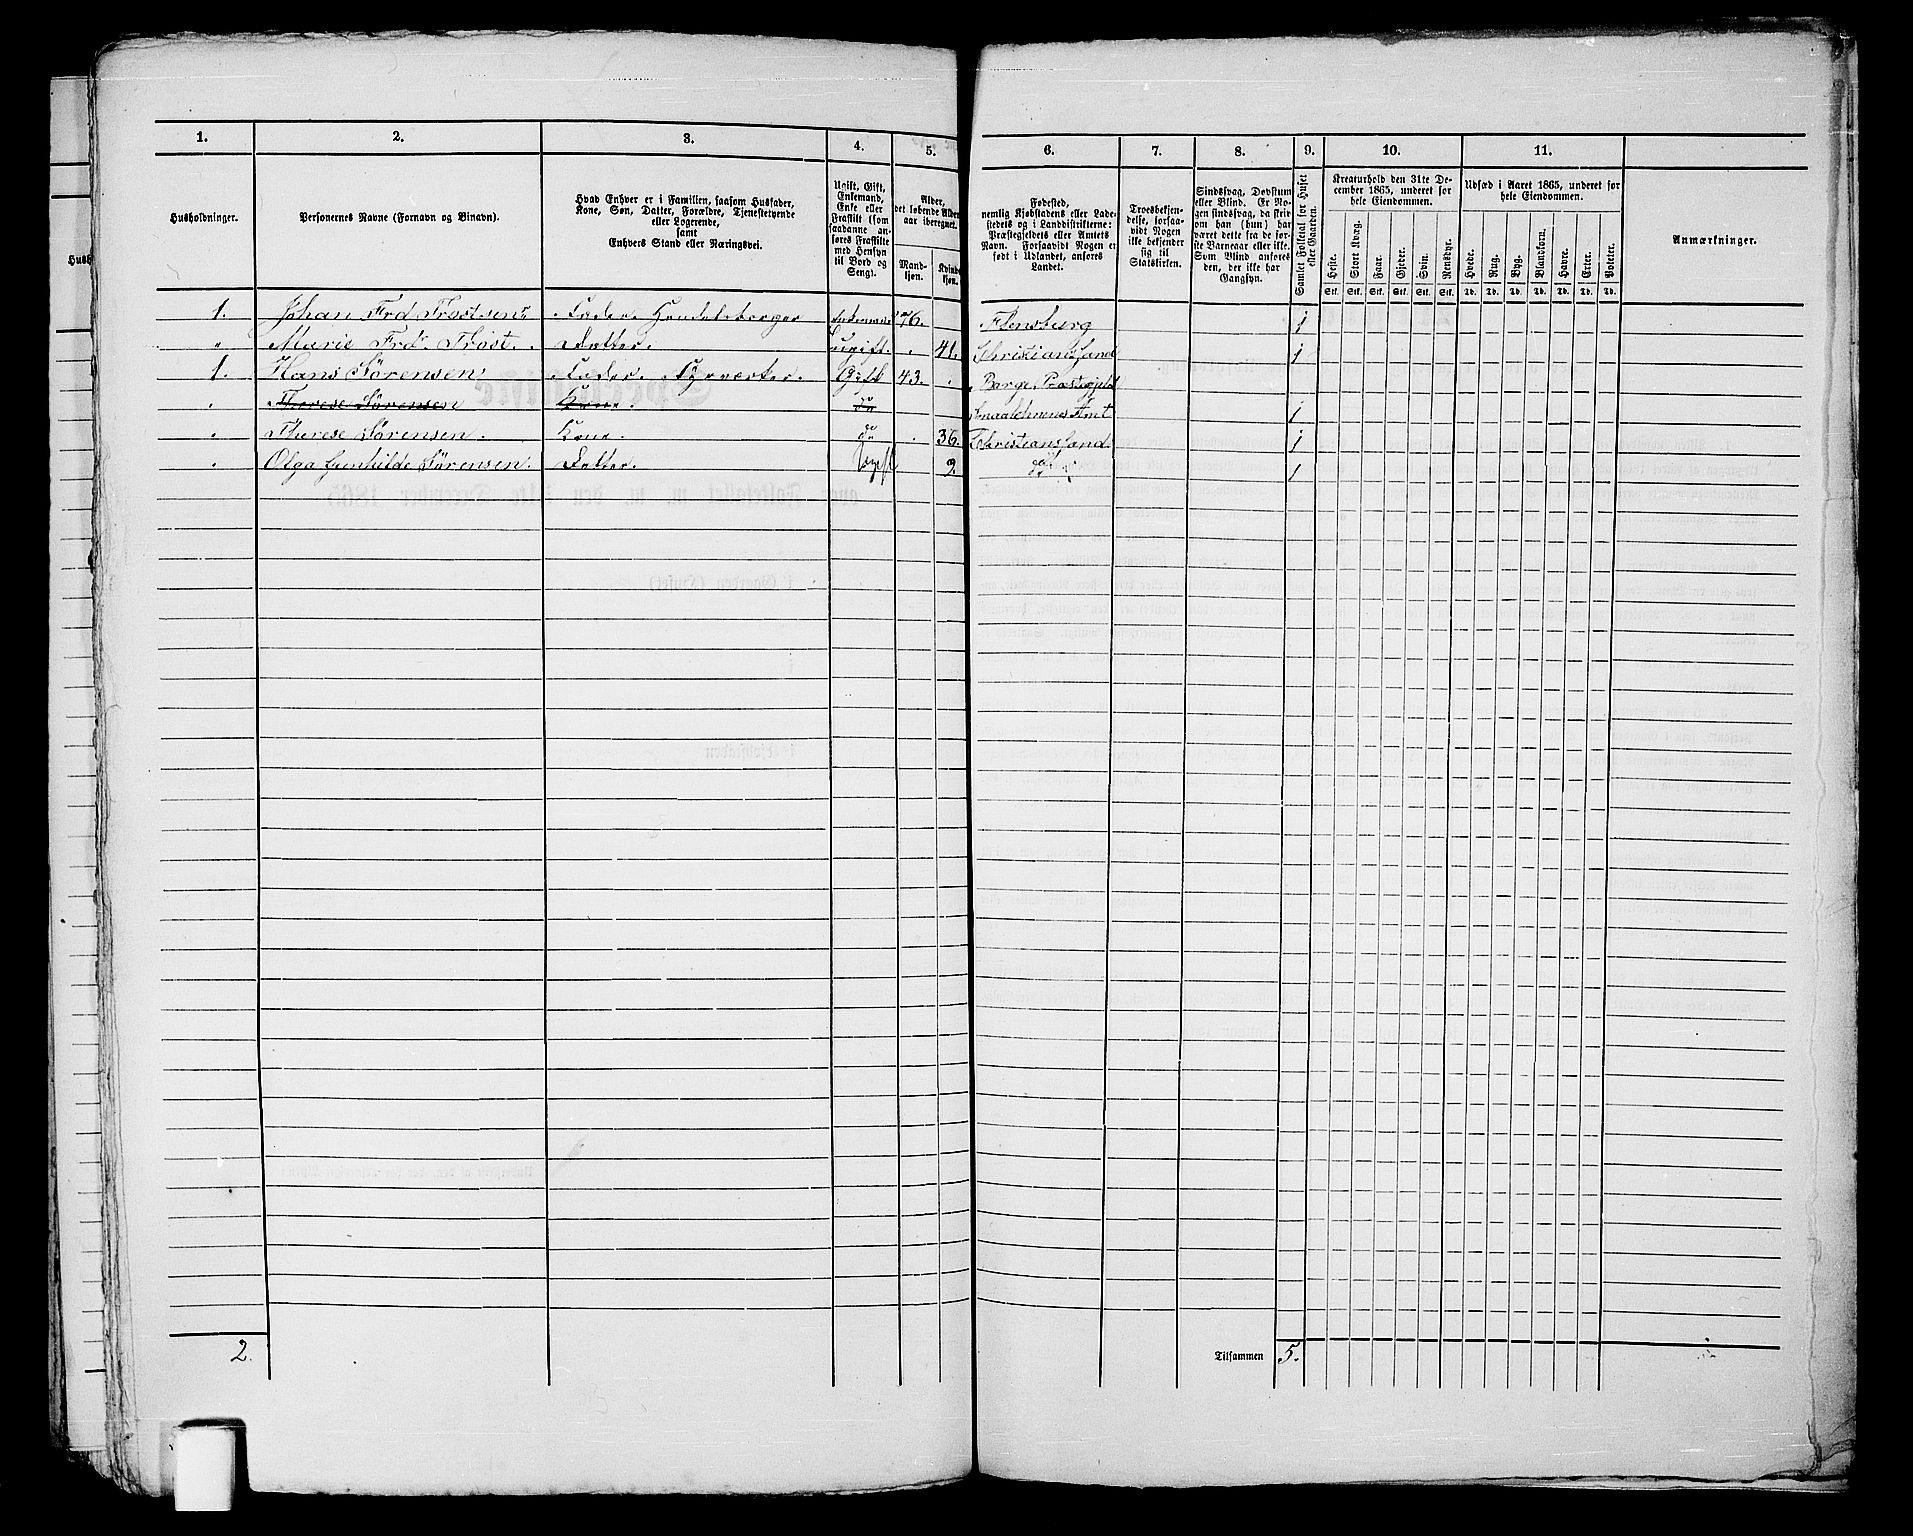 1. 2. 3. 4. 5. 6. 7. 8. 9. 10. 11.
Husholdninger.
Personernes Navne (Fornavn og Binavn).
Hvad Enhver er i Familien, saasom Husfader,
Kone, Søn, Datter, Forældre, Tjenestetyende
eller Logerende,
samt
Enhvers Stand eller Næringsvei.
Ugift, Gift,
Enkemand,
Enke eller
Fraskilt (som
saadanne an-
føres Fraskilte
med Hensyn
til Bord og
Seng).
Alder,
det løbende Alders-
aar iberegnet.
Mand-
kjøn.
Kvinde-
kjøn.
Fødested,
nemlig Kjøbstadens eller Lade-
stedets og i Landdistrikterne:
Præstegjeldets eller Amtets
Navn. Forsaavidt Nogen er
født i Udlandet, anføres
Landet.
Troesbekjen-
delse, forsaa-
vidt Nogen
ikke bekjender
sig til
Statskirken.
Sindssvag, Døvstum
eller Blind. Er No-
gen sindssvag, da skrives
om han (hun) har
været dette fra de før-
ste Barneaar eller ikke.
Som Blind anføres
den, der ikke har
Gangsyn.
Samlet Folketal for Huset
eller Gaarden.
Kreaturhold den 31te De-
cember 1865, underet for
hele Eiendommen.
Heste. Stort Kvæg. Faar. Gjeder. Svin. Rensdyr.
Stk. Stk. Stk. Stk. Stk. Stk.
Udsæd i Aaret 1865, underet for
hele Eiendommen.
Hvede. Rug. Byg. Blandkorn. Havre. Erter. Poteter.
Td. Td. Td. Td. Td. Td. Td.
Anmærkninger.
1. Johan Frd Trostsen Fader Handelsborger Enkemand 76. Flensburg 1
" Marie Frd. Trost. Datter. Ugift. " 41. Christianssand 1
1. Hans Sørensen Fader. Gift 43. " Borge Præstegjeld
" Therese Sørensen Kone. do Smaalehnenes Amt 1
" Therese Sørensen. Kone. do " 36. Christianssand 1
" Olga Gunhilde Sørensen. Datter. Ugift 9. do 1
2. Tilsammen 5.